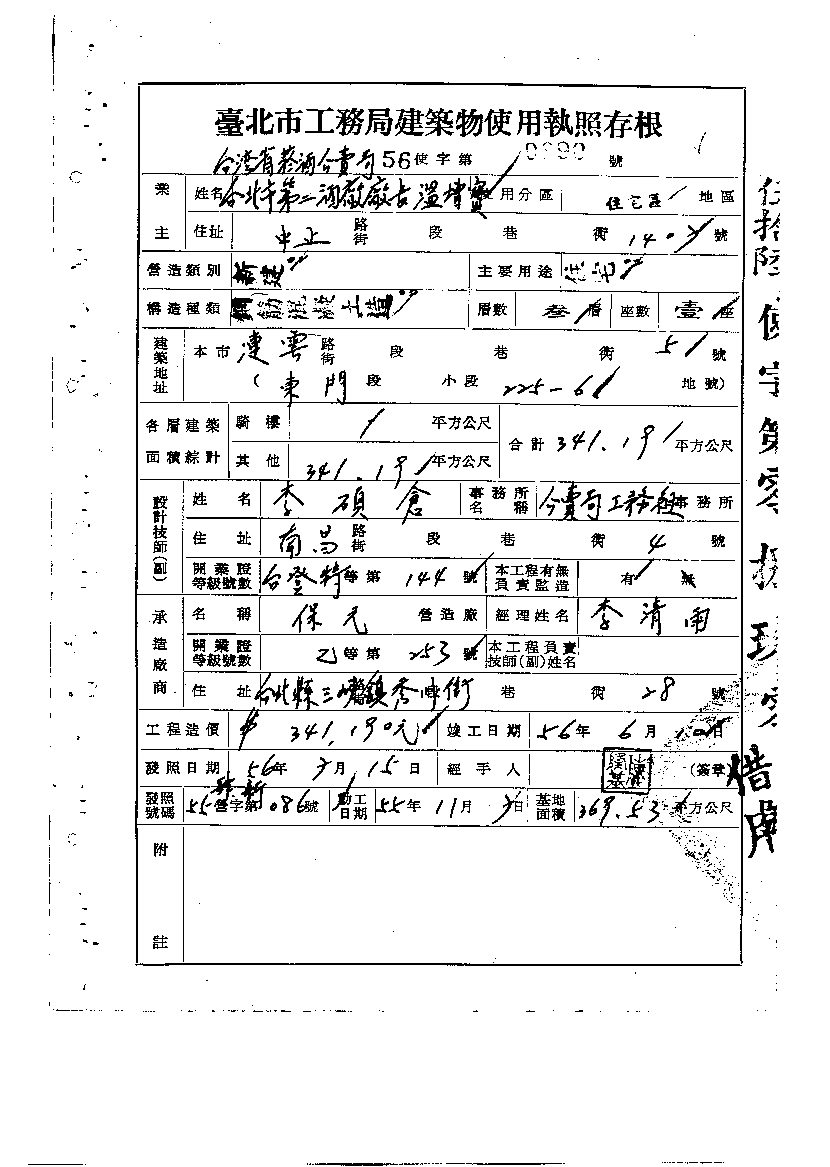 臺北市工務局建築物使用執照存根
台灣省菸酒公賣局 56使字第 0390 號
業主 姓名 台北市第二酒廠廠長溫增寶 使用分區 住宅區 地區
住址 中正 路街 段 巷 街 號
營造類別 新建 主要用途 住宅
構造種類 鋼筋混凝土造 層數 叁層 座數 壹座
建築地址 本市 連雲 路街 段 巷 街 51 號
(東門段 小段 225-61 地號)
各層建築面積綜計 騎樓 平方公尺 合計 341.19 平方公尺
其他 341.19 平方公尺
設計技師(副) 姓名 李碩倉 事務所名稱 公賣局工務組 事務所
住址 南昌 路街 段 巷 街 4 號
開業證等級號數 台登特等第 144 號 本工程有無負責監造 有 無
承造廠商 名稱 保元 營造廠 經理姓名 李清雨
開業證等級號數 乙等第 253 號 本工程負責技師(副)姓名
住址 台北縣三 鎮秀 街 巷 街 28 號
工程造價 $341,190元 竣工日期 56年 6月 10日
發照日期 56年 7月 15日 經手人 (簽章)
發照號碼 55 營字第 086 號 動工日期 55年 11月 7日 基地面積 369.53 平方公尺
附註
伍拾陸使字第零 玖零